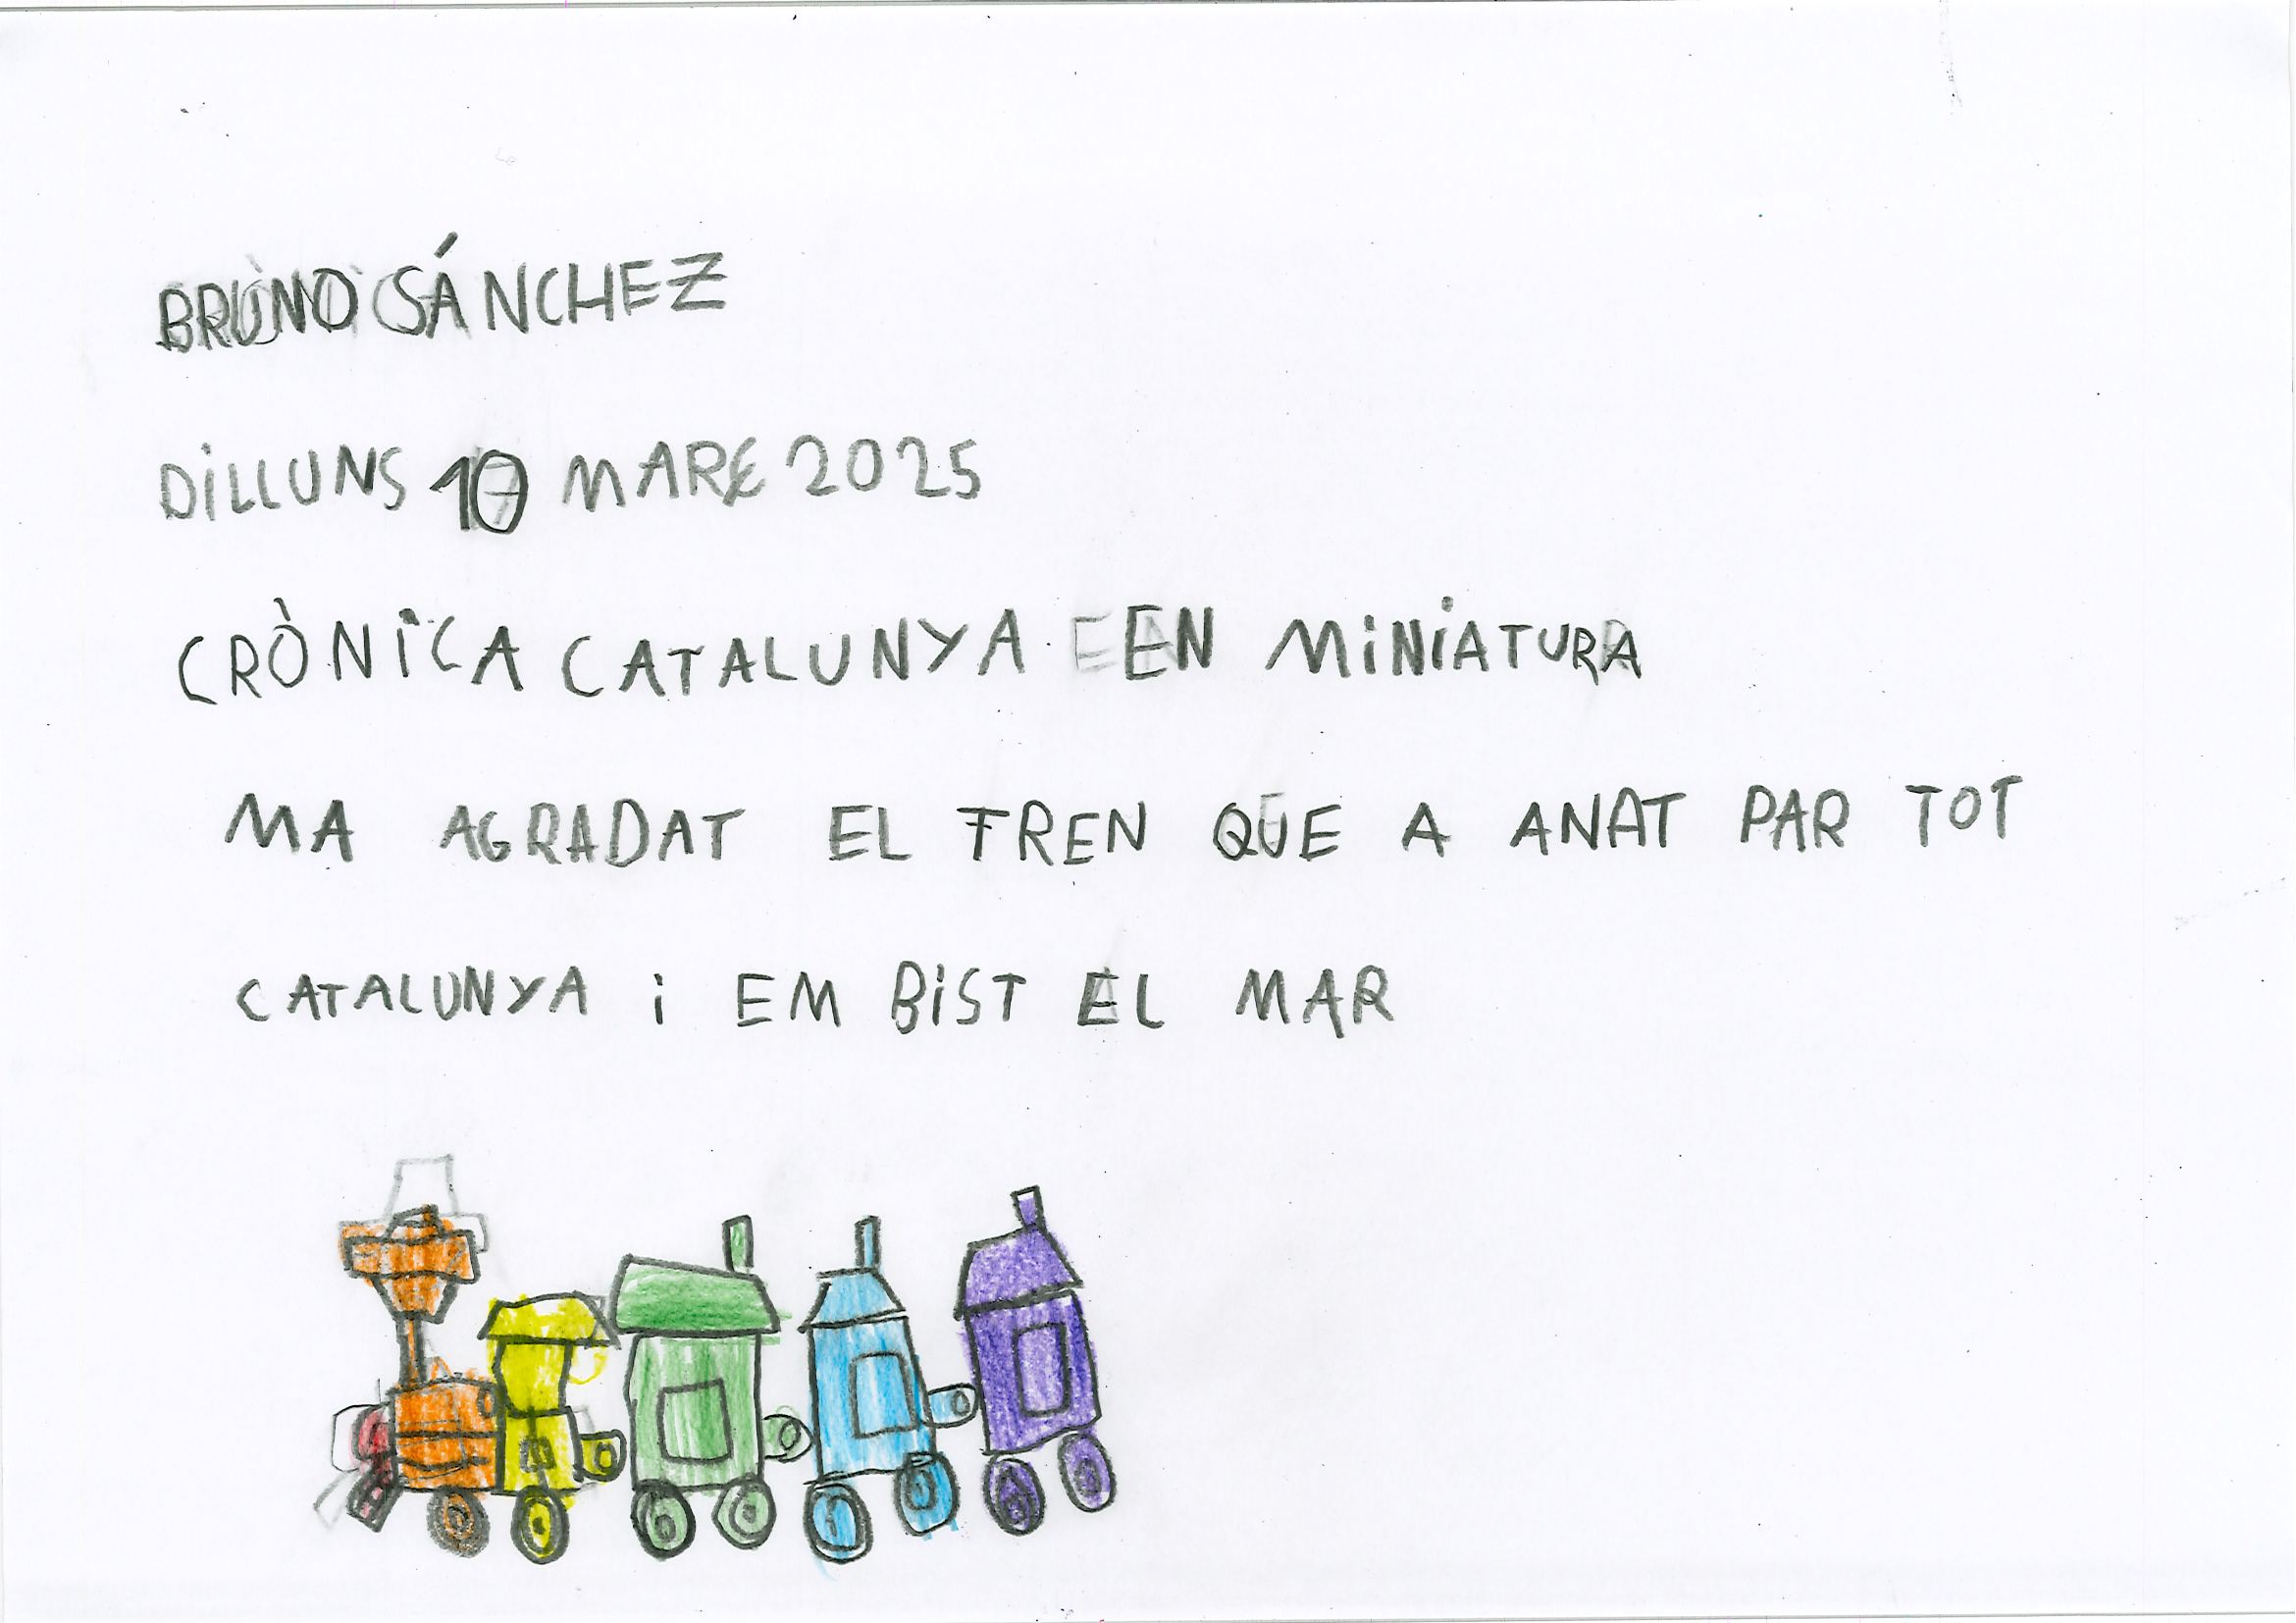 BRUNO SÁNCHEZ
DILLUNS 10 MARÇ 2025
CRÒNICA CATALUNYA EN MINIATURA
MA AGRADAT EL TREN QUE A ANAT PAR TOT
CATALUNYA i EM BIST EL MAR